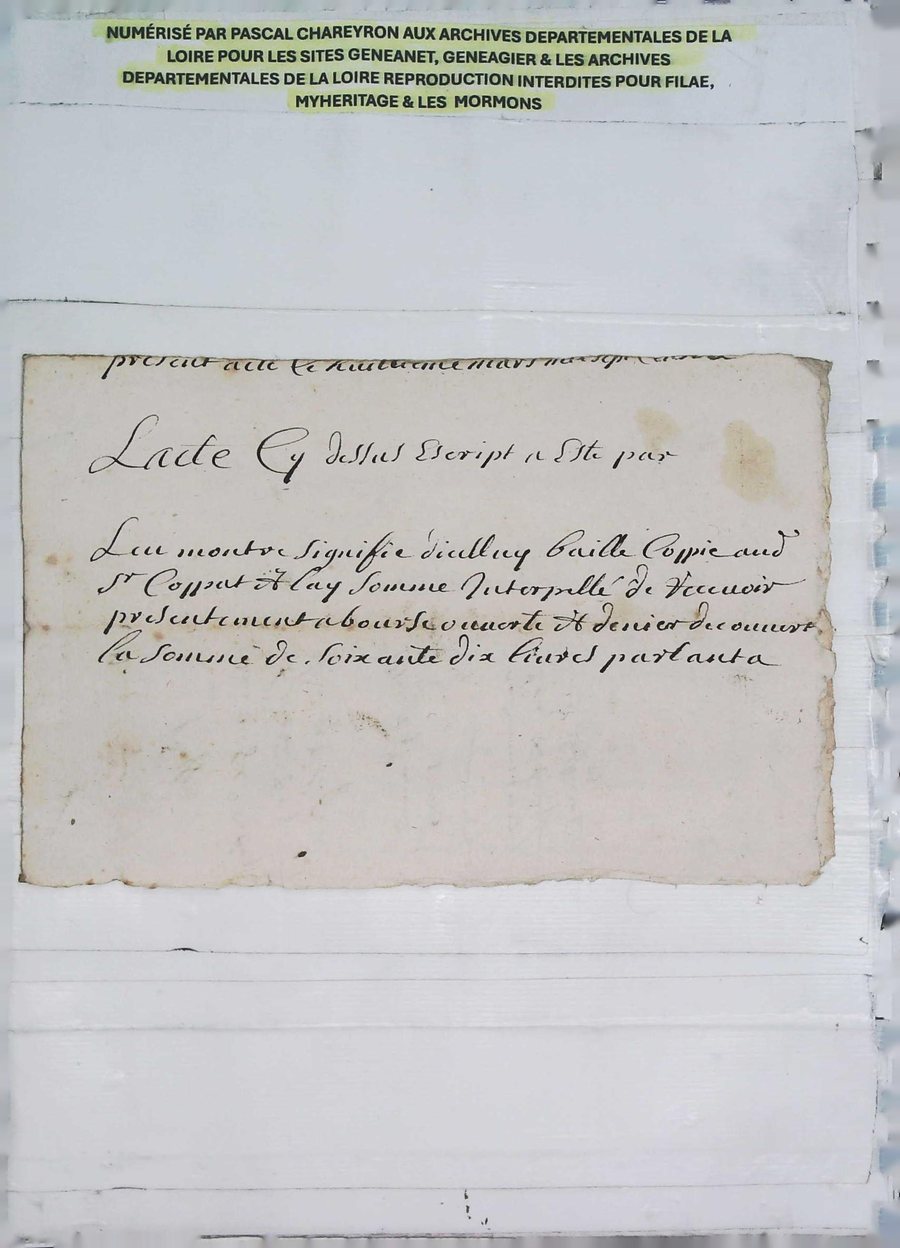 NUMÉRISÉ PAR PASCAL CHAREYRON AUX ARCHIVES DEPARTEMENTALES DE LA
LOIRE POUR LES SITES GENEANET, GENEAGIER & LES ARCHIVES
DEPARTEMENTALES DE LA LOIRE REPRODUCTION INTERDITES POUR FILAE,
MYHERITAGE & LES MORMONS
présent acte le huitième mars mil sept
Lacte Cy dessus Escript a Este par
Leu montre signifie baille Coppie aud
Sr Coppat & luy somme Interpellé de Recevoir
presentement a bourse ouverte & denier decouvert
la somme de soixante dix livres parlant a